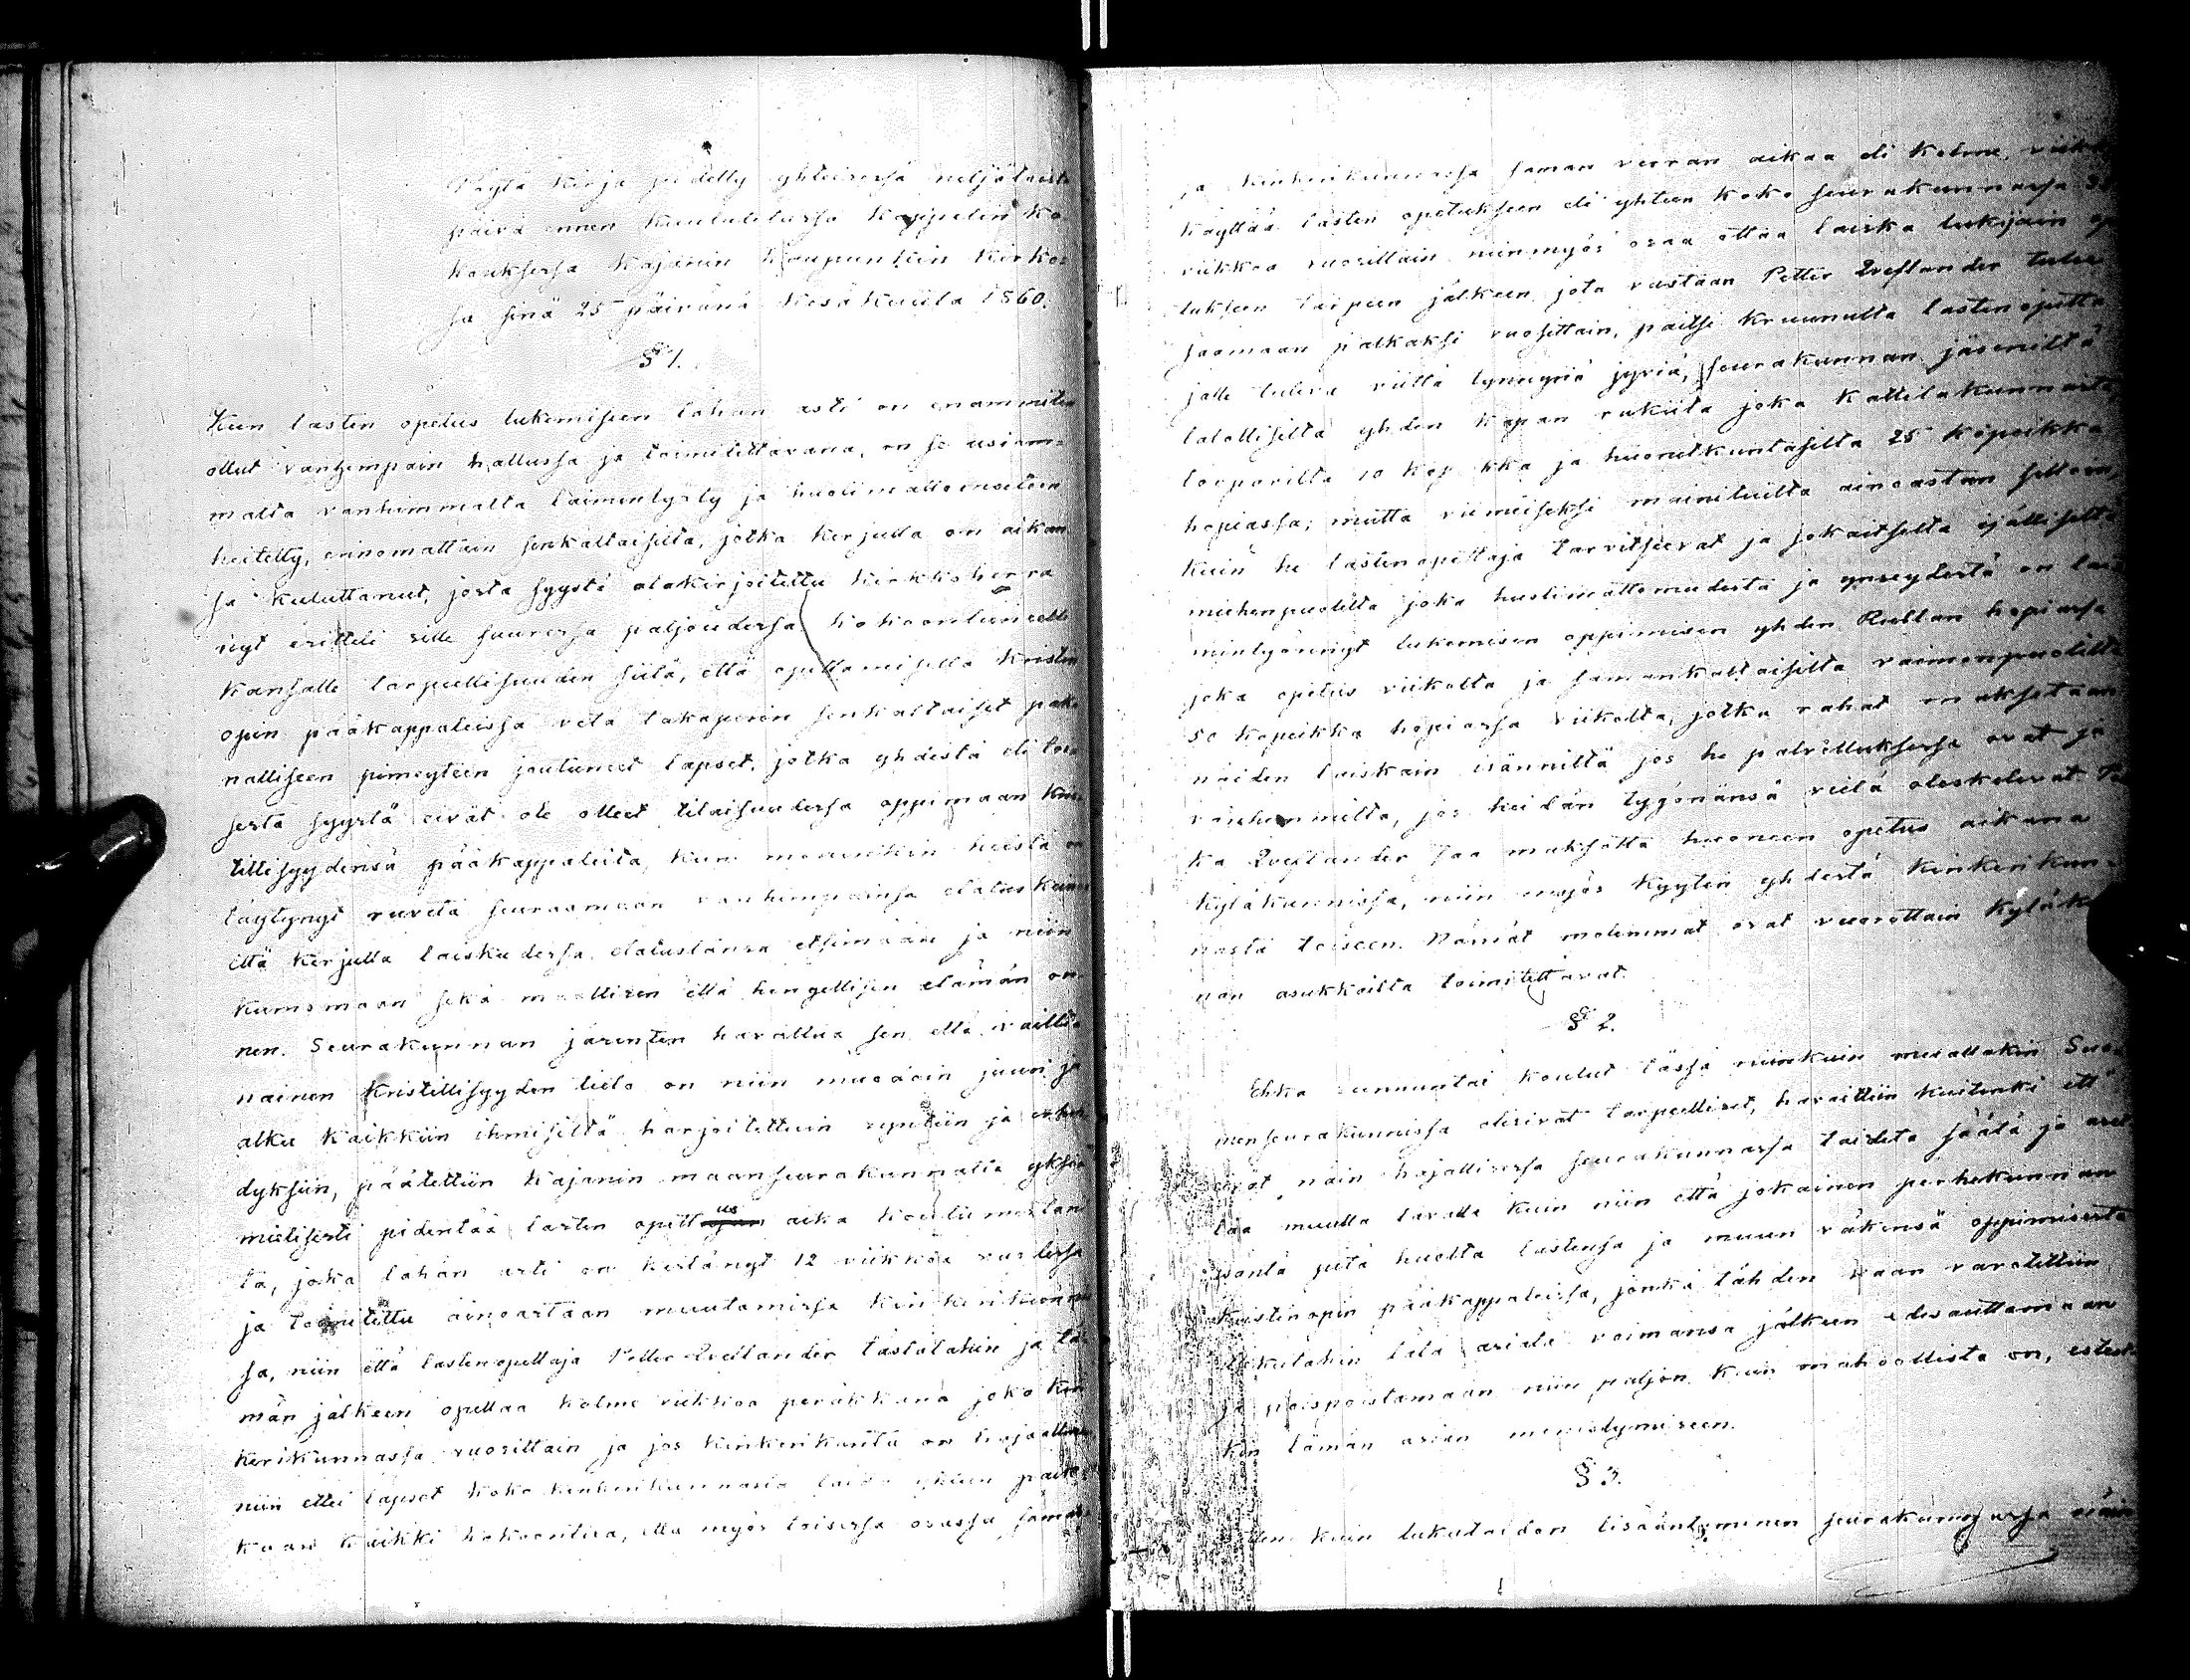 Pöytä kirja pidetty yhteisessä neljätoista
päivä ennen kuulutetussa Kappelin Ko-
kouksessa Kajanin Kaupungin Kirkos-
sa sinä 25 päivänä Kesäkuuta 1860.
§ 1.
Kun lasten opetus lukemiseen tähän asti on enammiten
ollut vanhempain hallussa ja toimitettavana, on se usiam-
malta vanhimmalta laiminlyöty ja huolimattomuuteen
heitetty, erinomattain senkaltaisilta, jotka kerjulla on aikan-
sa kuluttanut, josta syystä alakirjoitettu Kirkkoherra
nyt eritteli sille suuressa paljoudessa kokoontuneelle
kansalle tarpeellisuuden siitä, että opettamisella Kristin
opin pääkappaleissa vetä takaperin senkaltaiset paka-
nalliseen pimeyteen joutuneet lapset, jotka yhdestä eli toi-
sesta syystä eivät ole olleet tilaisuudessa oppimaan Kris-
tillisyydensä pääkappaleita, kun monenkin heistä on
täytynyt ruveta seuraamaan vanhimpainsa elatus keino
että kerjulla laiskudessa elatustansa etsimään ja niin
kumomaan sekä maallisen että hengellisen elämän on-
nen. Seurakunnan jäsenten havattua sen, että vailli-
nainen Kristillisyyden tieto on niin muodoin juuri ja
alku kaikkiin ihmisiltä harjoitettuin synteiin ja erhe-
dyksiin, päätettiin Kajanin maanseurakunnalta yksi-
mielisesti pidentää lasten opetus aika Koulumestaril-
ta, joka tähän asti on kestänyt 12 viikkoa vuodessa
ja toimitettu ainoastaan muutamissa kinkerikunnis-
sa, niin että lastenopettaja Petter Qvestlander tästälähin ja tä-
män jälkeen opettaa kolme viikkoa peräkkänä joka Kin-
kerikunnassa vuosittain ja jos Kinkerikunta on hajallinen
niin ettei lapset koko kinkerikunnasta taida yhteen paik-
kaan kaikki kokoontua, että myös toisessa osassa samas-
sa kinkerikunnassa saman verran aikaa eli kolme viikko
käyttää lasten opetukseen eli yhteen koko seurakunnassa
viikkoa vuosittain niinmyös osaa ottaa laiska lukijain op-
tukseen tarpeen jälkeen, jota vastaan Petter Qvestlander tulee
saamaan palkaksi vuosittain, paitsi kruunulta lastenopetta-
jalle tuleva viittä tynnyriä jyviä, seurakunnan jäseniltä
talolliselta yhden kapan rukiita joka kattilakunnasta,
torparilta 10 kopeikka ja huonetkuntasilta 25 kopeikka
hopiassa; mutta viimeiseksi mainituilta ainoastan silloin,
kuin he lastenopettaja tarvitsevat ja jokaitselta isälliseltä
miehenpuolelta joka huolimattomudesta ja ynseydestä on lai-
minlyönnyt lukemisen oppimisen yhden Ruplan hopiassa
joka opetus viikolta ja samankaltaisilta vaimonpuolilta
50 kopeikka hopiassa viikolta, jotka rahat maksetaan
näiden laiskain isänniltä jos he palvelluksessa ovat ja
vanhemmilta, jos heidän tyyönänsä vielä oleskelevat
ka Qvestlander saa maksotta huoneen opetus aikana
kyläkunnissa, niin myös kyyten yhdestä kinkerikun-
nasta toiseen. Nämät molemmat ovat vuorottain kyläk
nan asukkailta toimitettavat.
§ 2.
Ehkä sunnuntai koulut tässä niinkuin muuallakin Suo-
menseurakunnissa olisivat tarpeelliset, havaittiin kuitenki ett
eivät näin hajallisessa seurakunnassa taideta säätä ja aset
taa muulla tavalla kuin niin että jokainen perhekunnan
isäntä pitä huolta lastensa ja muun väkensä oppimisesta
Kristinopin pääkappaleissa, jonka tähden vaan varotettiin
tätä asiata voimansa jälkeen edesauttamaan
ja poispoistamaan niin paljon kuin mahoollista on, esteet
kin tämän asian menestymiseen.
§ 3.
kuin lukutaidon lisääntyminen seurakunnassa